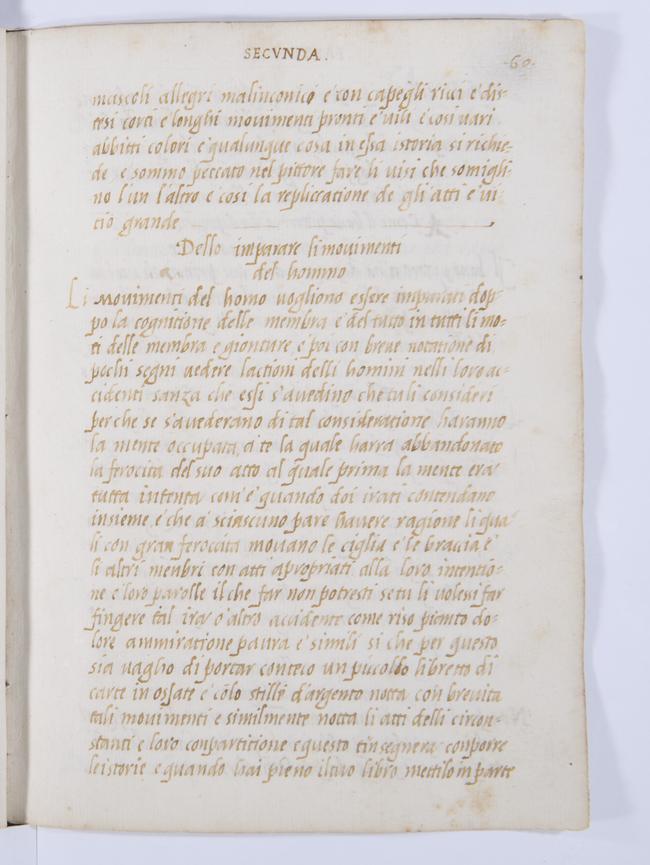 SECVNDA.
·60·
mascoli allegri malinconico e con capegli ricci e dis-
tesi corti e longhi movimenti pronti e vili e cosi vari
abbitti colori e qualunque cosa in essa istoria si richie-
de e sommo peccato nel pittore fare li visi che somigli-
no l'un l'altro e cosi la replicatione de gli atti e vi-
tio grande
Dello imparare li movimenti
del hommo
Li Movimenti del homo vogliono essere imparati dop-
po la cognitione delle membra e del tutto in tutti li mo-
ti delle membra e gionture e poi con breve notatione di
pochi segni vedere l'actioni delli homini nelli loro ac-
cidenti sanza che essi s'avedino che tu li consideri
perche se s'avederano di tal consideratione haranno
la mente occupata a te la quale harra abbandonato
la ferocita del suo atto al quale prima la mente era
tutta intenta com'e quando doi irati contendano
insieme e che a sciascuno pare havere ragione li qua
li con gran feroccita movano le ciglia e le braccia e
li altri menbri con atti apropriati alla loro intentio-
ne e loro parolle il che far non potresti se tu li volessi far
fingere tal ira o altro accidente come riso pianto do-
lore ammiratione paura e simili si che per questo
sia vaglio di portar conteco un piccolbo libretto di
carte in ossate e colo stille d'argento notta con brevita
tali movimenti e similmente notta li atti delli circon-
stanti e loro conpartitione e questo t'insegnera conporre
le istorie e quando hai pieno il tuo libro mettilo in parte